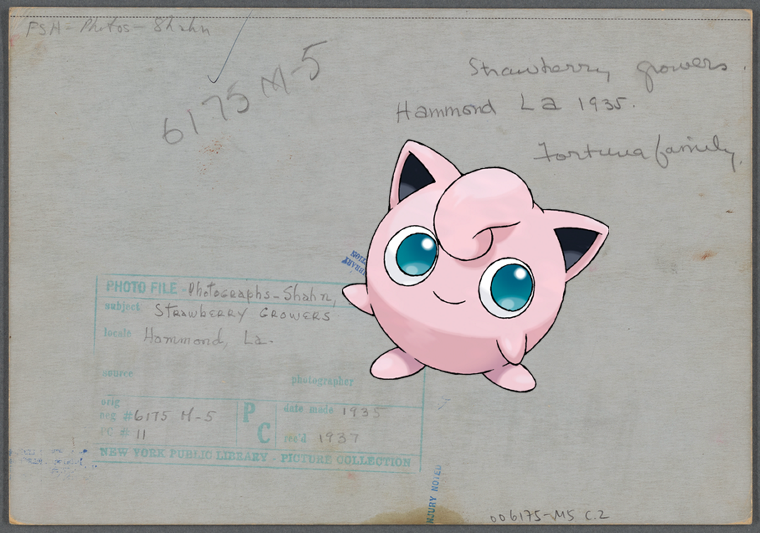 FSA-Photos-Shahn
6175 M-5
Strawberry growers.
Hammond La 1935.
Fortuna family.
PHOTO FILE - Photographs-Shahn,
subject STRAWBERRY GROWERS
locale Hammond, La.
source
photographer
orig
neg # 6175 M-5
date made 1935
PC # 11
PC
rec'd 1937
NEW YORK PUBLIC LIBRARY - PICTURE COLLECTION
006175-M5 C.2